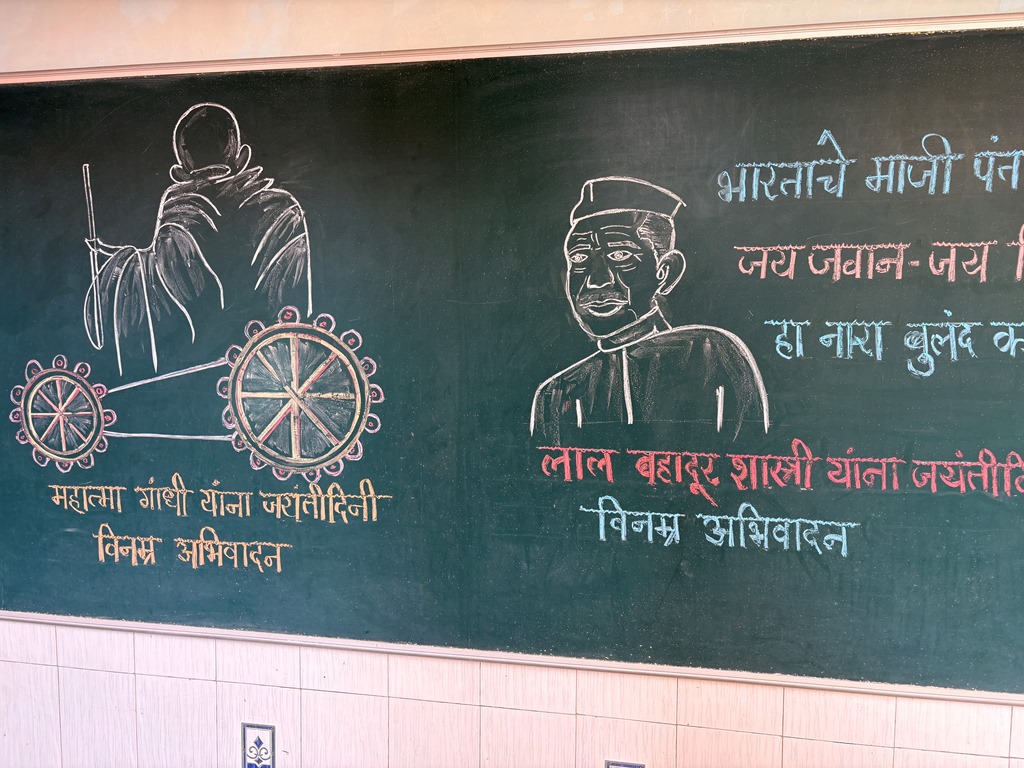 महात्मा गांधी यांना जयंतीदिनी
विनम्र अभिवादन
भारताचे माजी पंत
जय जवान-जय
हा नारा बुलंद
लाल बहादूर शास्त्री यांना
विनम्र अभिवादन